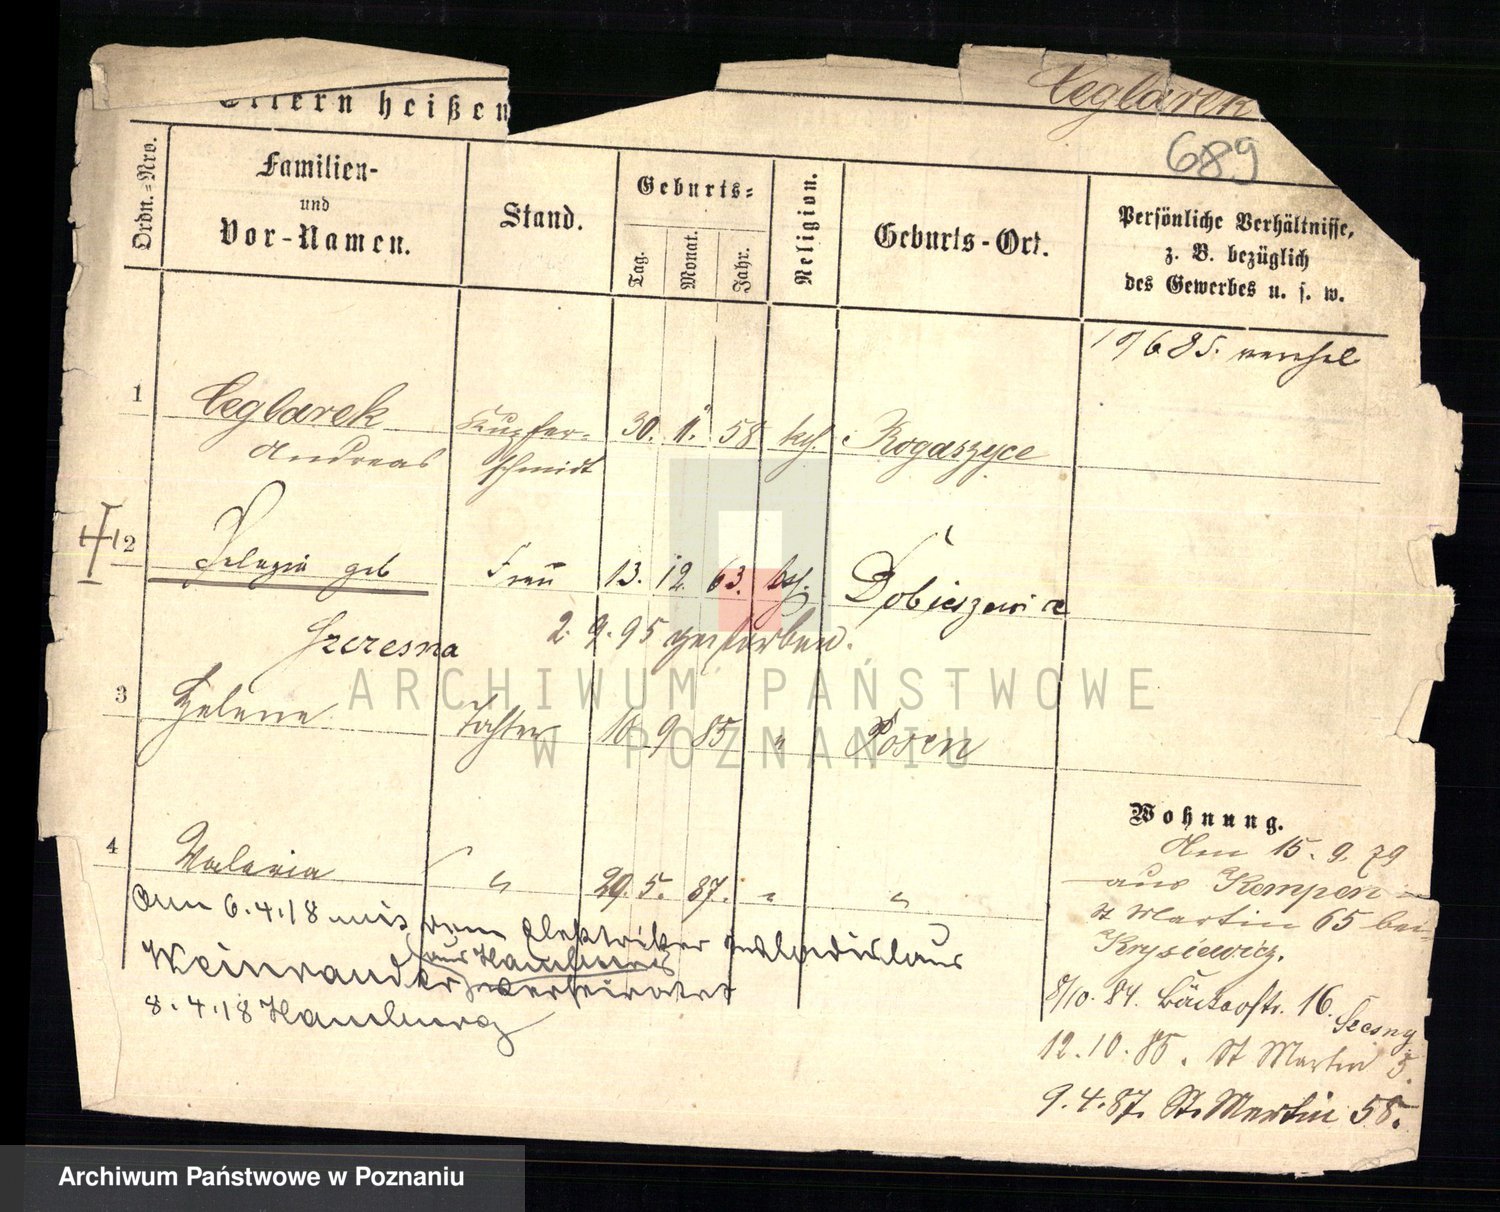 Ceglarek
Eltern heißen
689
Ordn.=Nro.
Familien-
und
Vor-Namen.
Stand.
Geburts=
Tag.
Monat.
Jahr.
Religion.
Geburts-Ort.
Persönliche Verhältnisse,
z. B. bezüglich
des Gewerbes u. s. w.
1 Ceglarek Kupfer- 30. 11. 58 kth. Rogaszyce
Andreas schmidt
2 Pelagia geb Frau 13. 12. 63. kth. Dobieszewice
Szczesna 2. 9. 95 gestorben.
3 Helene Tochter 10. 9 85 " Posen
4 Valeria " 29. 5. 87. " "
Am 6.4.18 mit dem Elektriker Wladislaus
aus Hamburg
Weinrander verheiratet
8.4.18 Hamburg
Wohnung.
Am 15. 9. 79
aus Kempen
St Martin 65 bei
Krysiewicz.
8/10. 84. Bäckerstr. 16.
Szesny
12. 10. 85. St Martin 5.
9. 4. 87. St. Martin 58.
ARCHIWUM PAŃSTWOWE
W POZNANIU
Archiwum Państwowe w Poznaniu